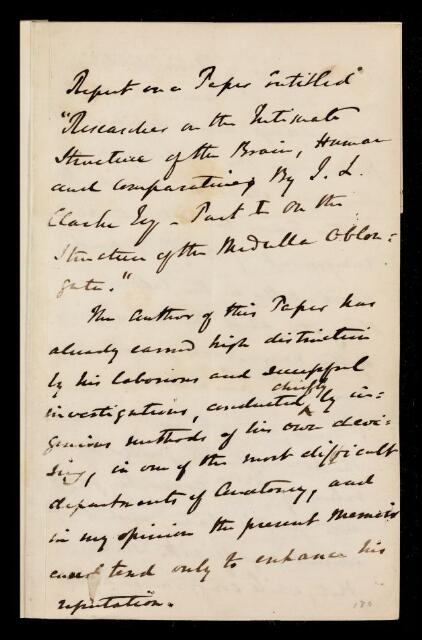 Report on a Paper entitled
"Researches on the Intimate
Structure of the Brain, Human
and comparative, By J. L.
Clarke Esq - Part I on the
Structure of the Medulla Oblon=
gata."
The Author of this Paper has
already earned high distinction
by his laborious and successful
chiefly
investigations, conducted by in=
genious methods of his own devi=
sing, in one of the most difficult
departments of Anatomy, and
in my opinion the present Memoir
tend only to enhance his
reputation.